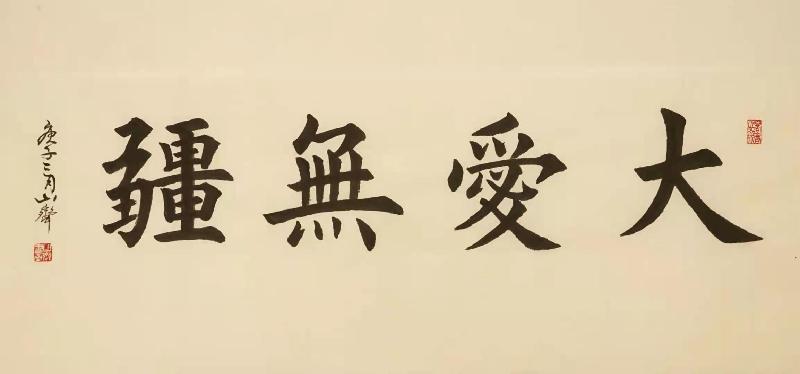 大愛無疆
庚子三月山聲